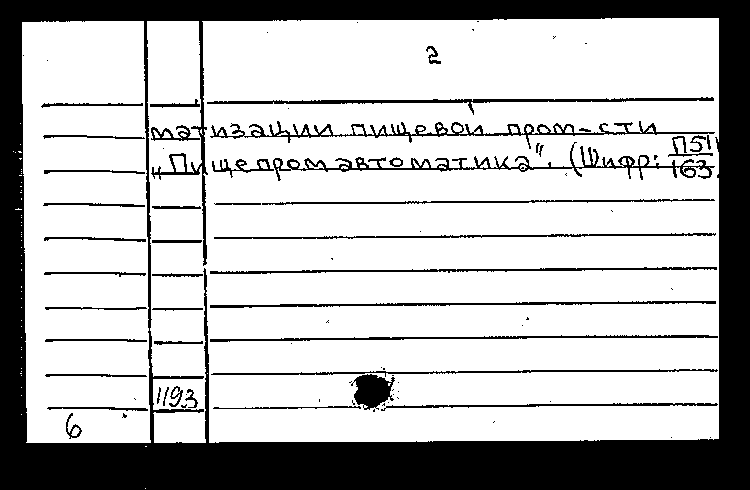 2
матизации пищевой пром-сти
„Пищепромавтоматика“. (Шифр: П51/163.
1193
6